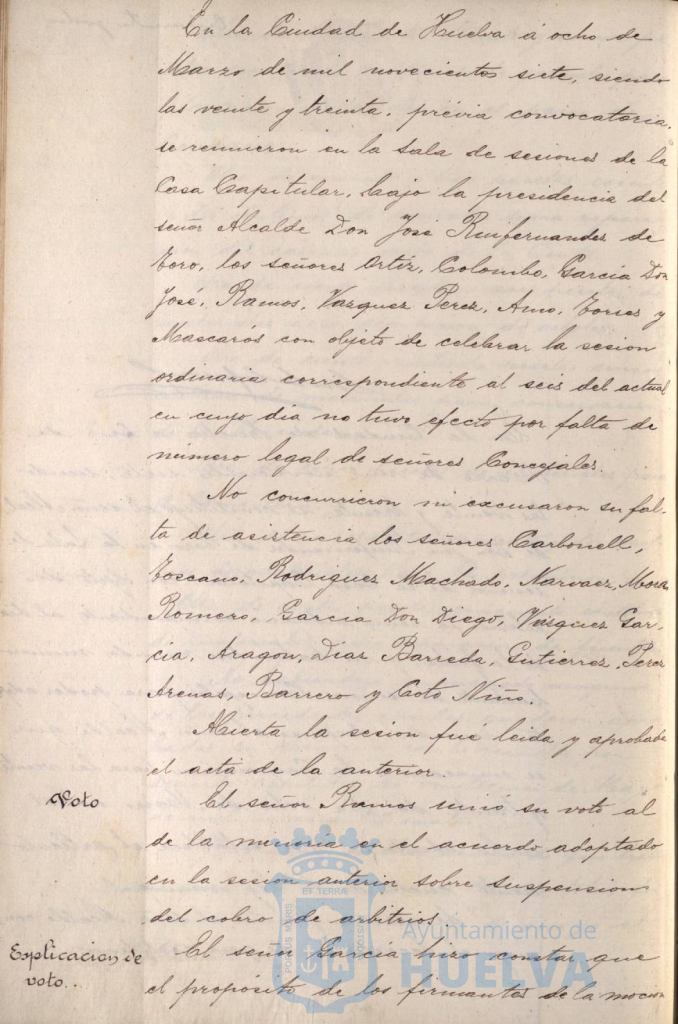 En la Ciudad de Huelva á ocho de
Marzo de mil novecientos siete, siendo
las veinte y treinta, prévia convocatoria,
se reunieron en la Sala de sesiones de la
Casa Capitular, bajo la presidencia del
señor Alcalde Don José Ruifernandez de
Toro, los señores Ortiz, Colombo, Garcia Don
José, Ramos, Vazquez Perez, Amo, Torres y
Mascarós con objeto de celebrar la sesion
ordinaria correspondiente al seis del actual
en cuyo dia no tuvo efecto por falta de
número legal de señores Concejales.
No concurrieron ni excusaron su fal-
ta de asistencia los señores Carbonell,
Toscano, Rodriguez Machado, Narvaez, Mora
Romero, Garcia Don Diego, Vazquez Gar-
cia, Aragon, Diaz Barreda, Gutierrez, Perez
Arenas, Barrero y Coto Niño.
Abierta la sesion fué leida y aprobada
el acta de la anterior.
Voto
El señor Ramos unió su voto al
de la menoria en el acuerdo adoptado
en la sesion anterior sobre suspension
del cobro de arbitrios.
Explicacion de
voto..
El señor Garcia hizo constar que
el propósito de los firmantes de la mocion
PORTUS MARIS
ET TERRÆ
CUSTODIA
Ayuntamiento de
HUELVA